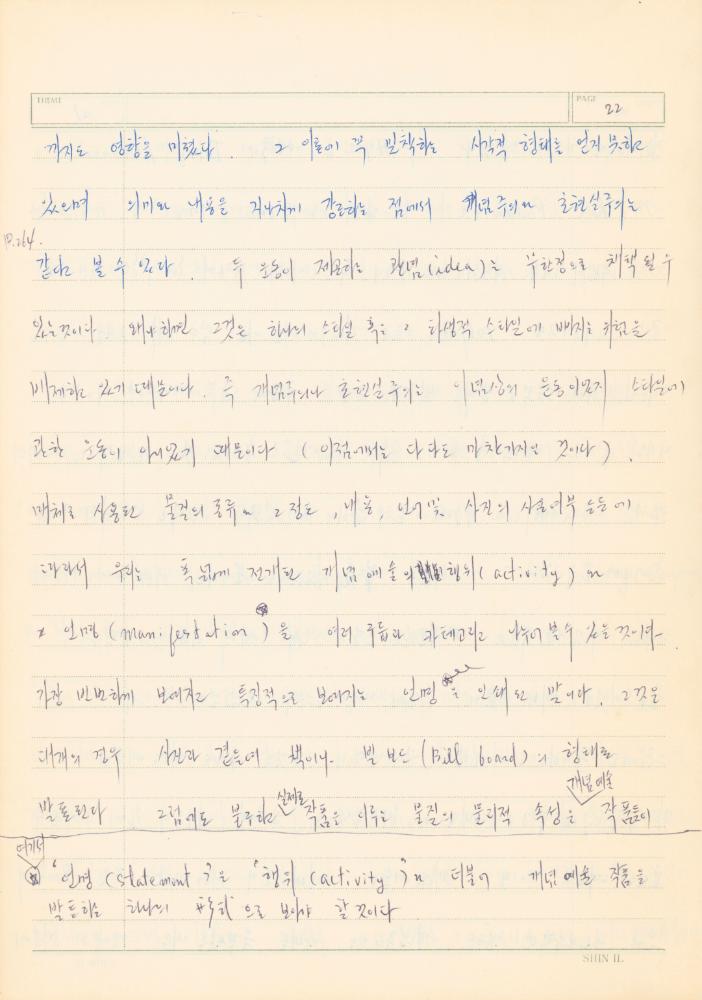 THEME
PAGE
22
까지도 영향을 미쳤다. 그 이름에 꼭 밀착하는 시각적 형태를 얻지 못하고
있으며 의미와 내용을 지나치게 강조하는 점에서 개념주의와 초현실주의는
P.264.
같다고 볼 수 있다. 두 운동이 제공하는 관념(idea)는 무한정으로 채택될 수
있는것이다 왜냐하면 그것은 하나의 스타일 혹은 파생적 스타일에 빠지는 위험을
배제하고 있기 때문이다. 즉 개념주의나 초현실주의는 이념상의 운동이었지 스타일에
관한 운동이 아니었기 때문이다 (이점에서는 다다도 마찬가지인 것이다).
매체로 사용된 물질의 종류와 그 정도, 내용, 언어 및 사진의 사용여부 등등에
따라서 우리는 폭넓게 전개된 개념예술의 행위(activity)와
언명(manifestation)을 여러 그룹과 카테고리로 나누어 볼 수 있을 것이며
가장 빈번하게 보여지고 특징적으로 보여지는 언명은 인쇄된 말이다. 그것은
대개의 경우 사진과 곁들여 책이나 빌보드(Bill board)의 형태로
발표된다 그럼에도 불구하고 실제로 작품을 이루는 물질의 물리적 속성은 개념예술 작품들이
여기서
"언명(statement)"은 "행위(activity)"와 더불어 개념예술 작품을
발표하는 하나의 으로 보아야 할것이다
SHIN IL